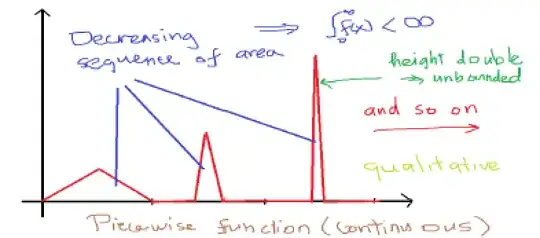 Decreasing
sequence of area
⟹ ∫₀^∞ f(x) < ∞
height double
→ unbounded
and so on
qualitative
Piecewise function (continuous)